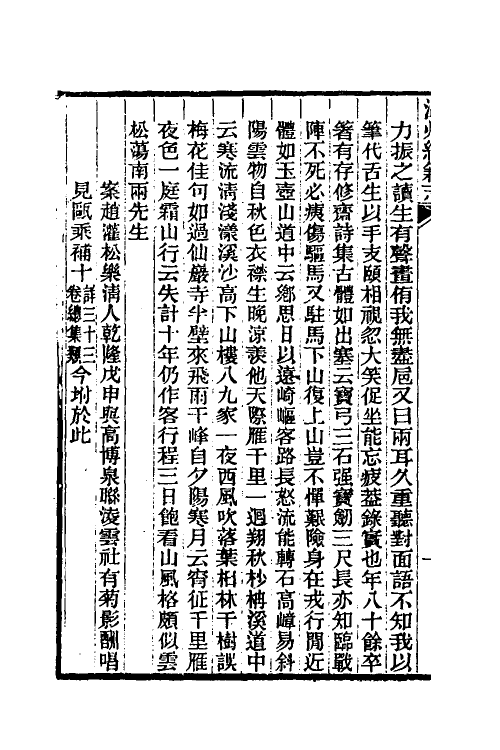 力振之讀生有聲畫侑我無盡巵又曰兩耳久重聽對面語不知我以
筆代舌生以手支頤相視忽大笑促坐能忘疲葢錄實也年八十餘卒
箸有存修齋詩集古體如出塞云寶弓三石强寶劒三尺長亦知臨戰
陣不死必痍傷驅馬又駐馬下山復上山豈不憚艱險身在戎行閒近
體如玉壺山道中云鄉思日以遠崎嶇客路長怒流能轉石高嶂易斜
陽雲物自秋色衣襟生晚涼羨他天際雁千里一迴翔秋杪楠溪道中
云寒流淸淺漾溪沙高下山樓八九家一夜西風吹落葉柏林千樹誤
梅花佳句如過仙巖寺半壁來飛雨千峰自夕陽寒月云窅征千里雁
夜色一庭霜山行云失計十年仍作客行程三日飽看山風格頗似雲
松蕩南兩先生
案趙灌松樂淸人乾隆戊申與高博泉聯淩雲社有菊影酬唱
見甌乘補十詳三十三卷總集類今坿於此